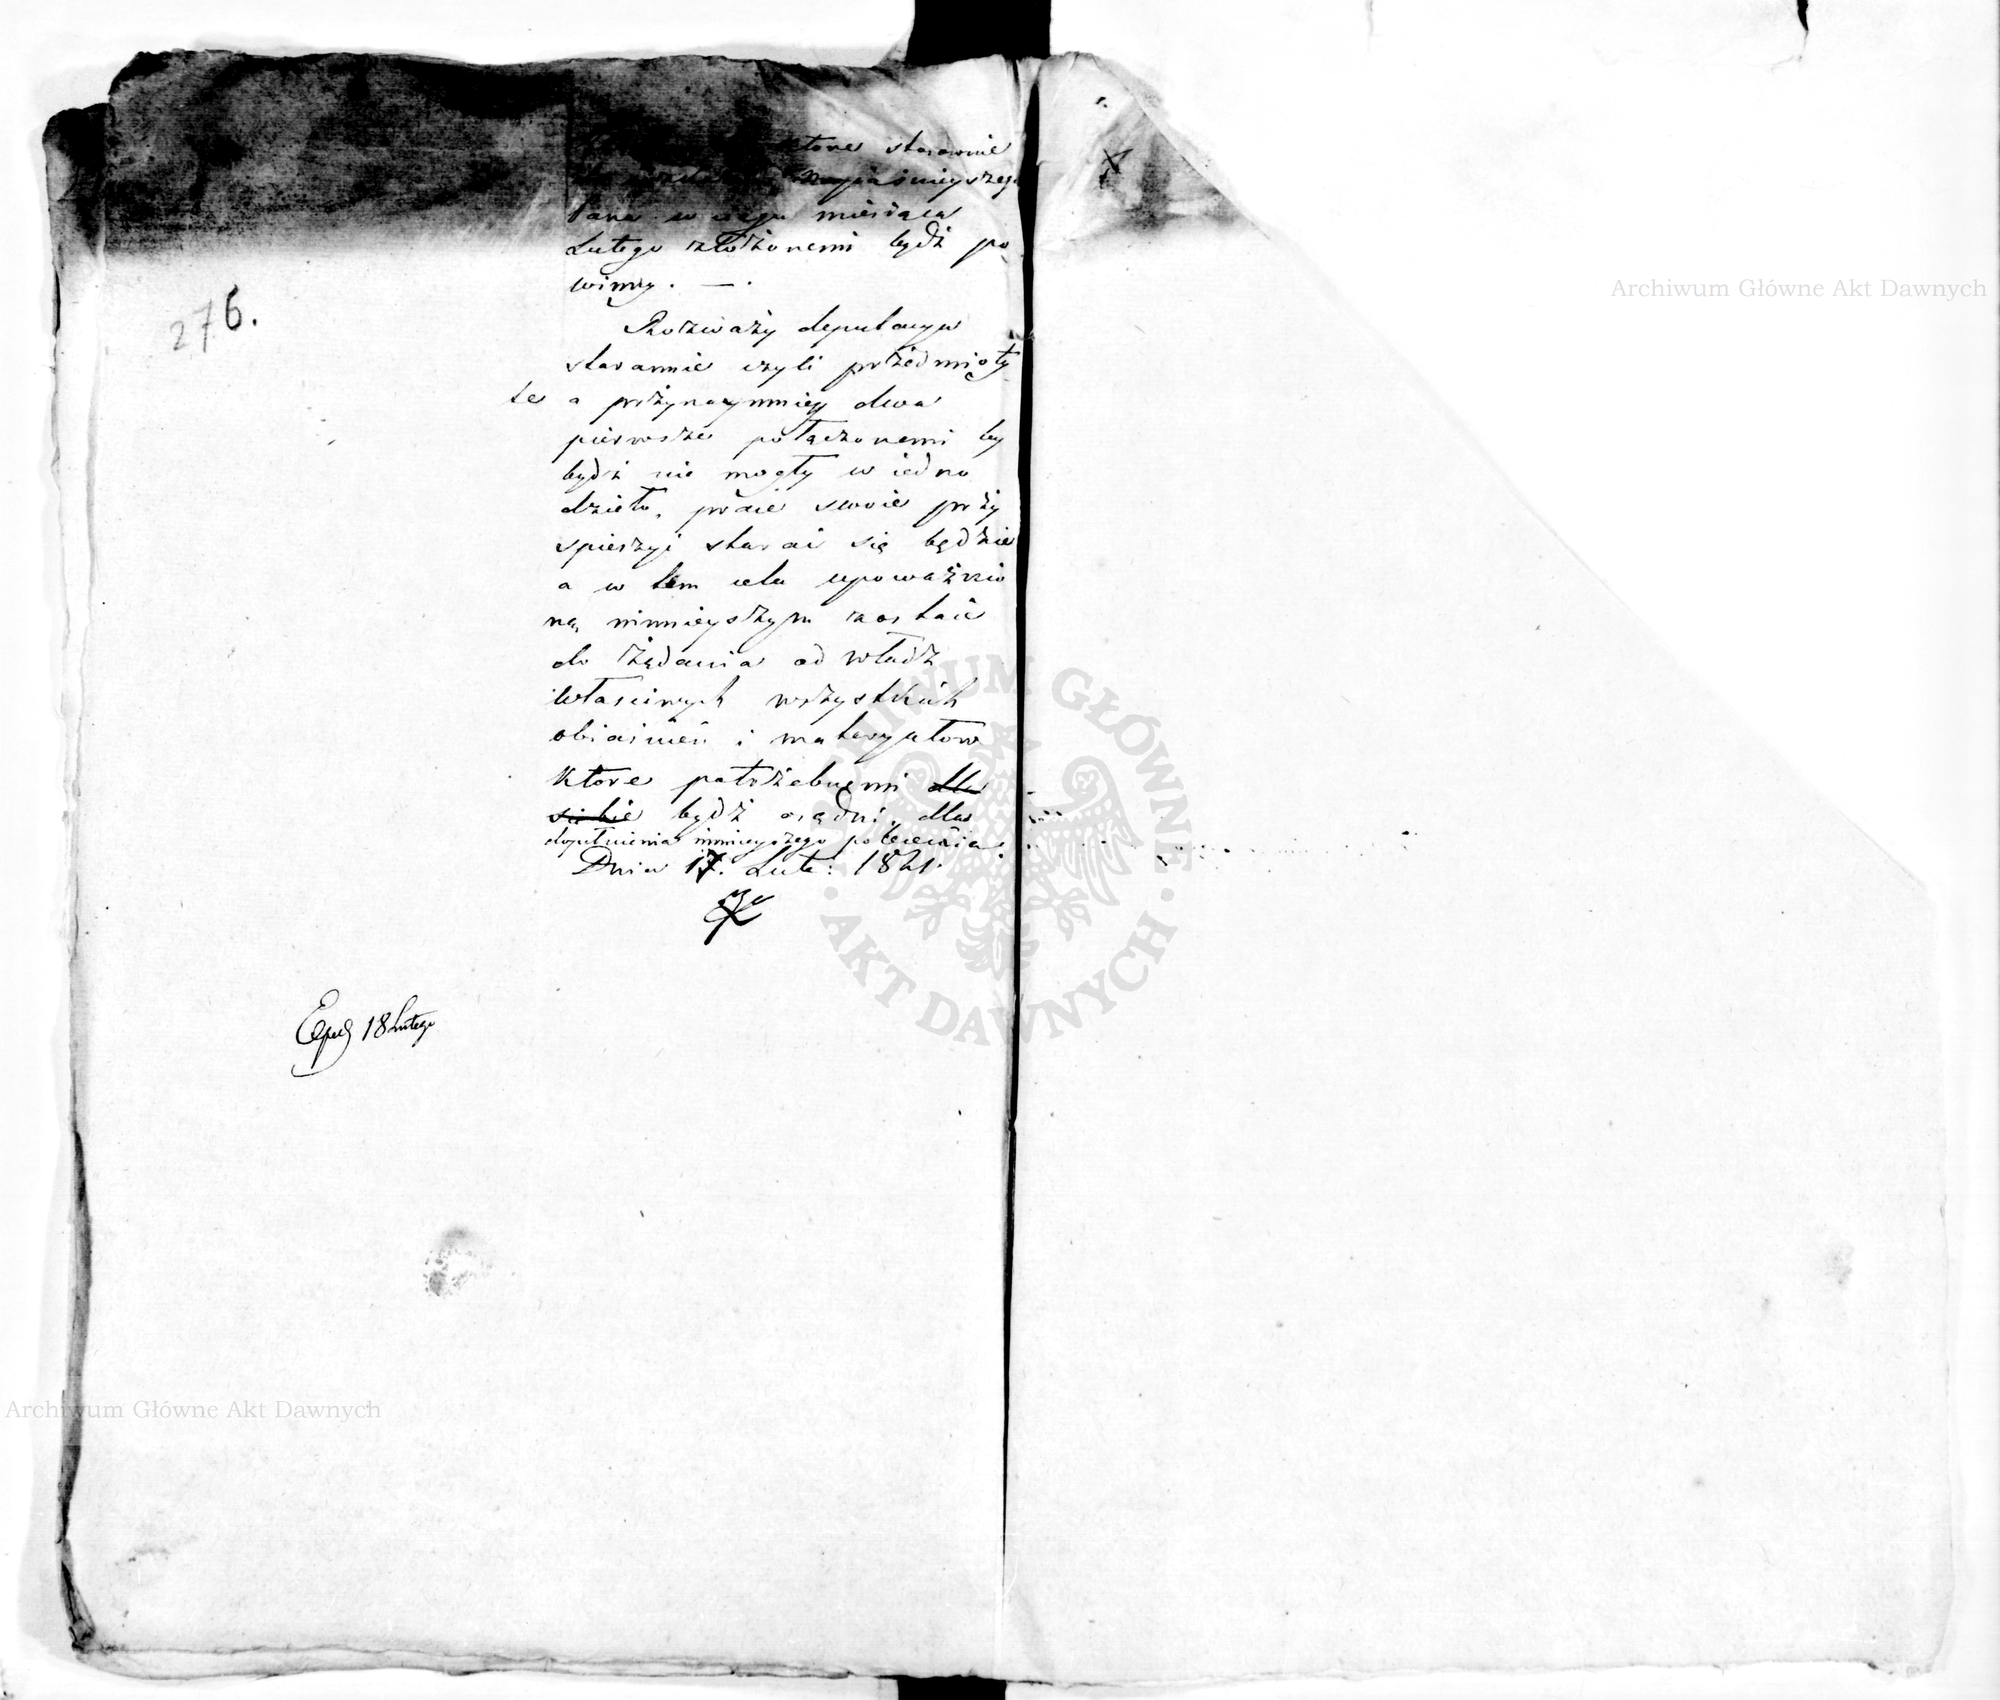 ktore starannie
Nayiaśnieyszego
Pana w ciągu miesiąca
Lutego złożonemi bydź po
winny. —.
276.
Rozważy deputacya
starannie czyli przedmioty
te a przynaymniey dwa
pierwsze połączonemi by
bydź nie mogły w iedno
dzieło, prace swoie przy
spieszyć starać się będzie
a w tem celu upoważnio
ną ninnieyszym zostaie
do żądania od władz
właściwych wszystkich
obiaśnień i materyałow
ktore potrzebnemi dla
siebie bydź osądzi, dla
dopełnienia ninnieyszego polecenia.
Dnia 17. Lute: 1821.
Exped 18 Lutego
Archiwum Główne Akt Dawnych
Archiwum Główne Akt Dawnych
ARCHIWUM GŁÓWNE
· AKT DAWNYCH ·